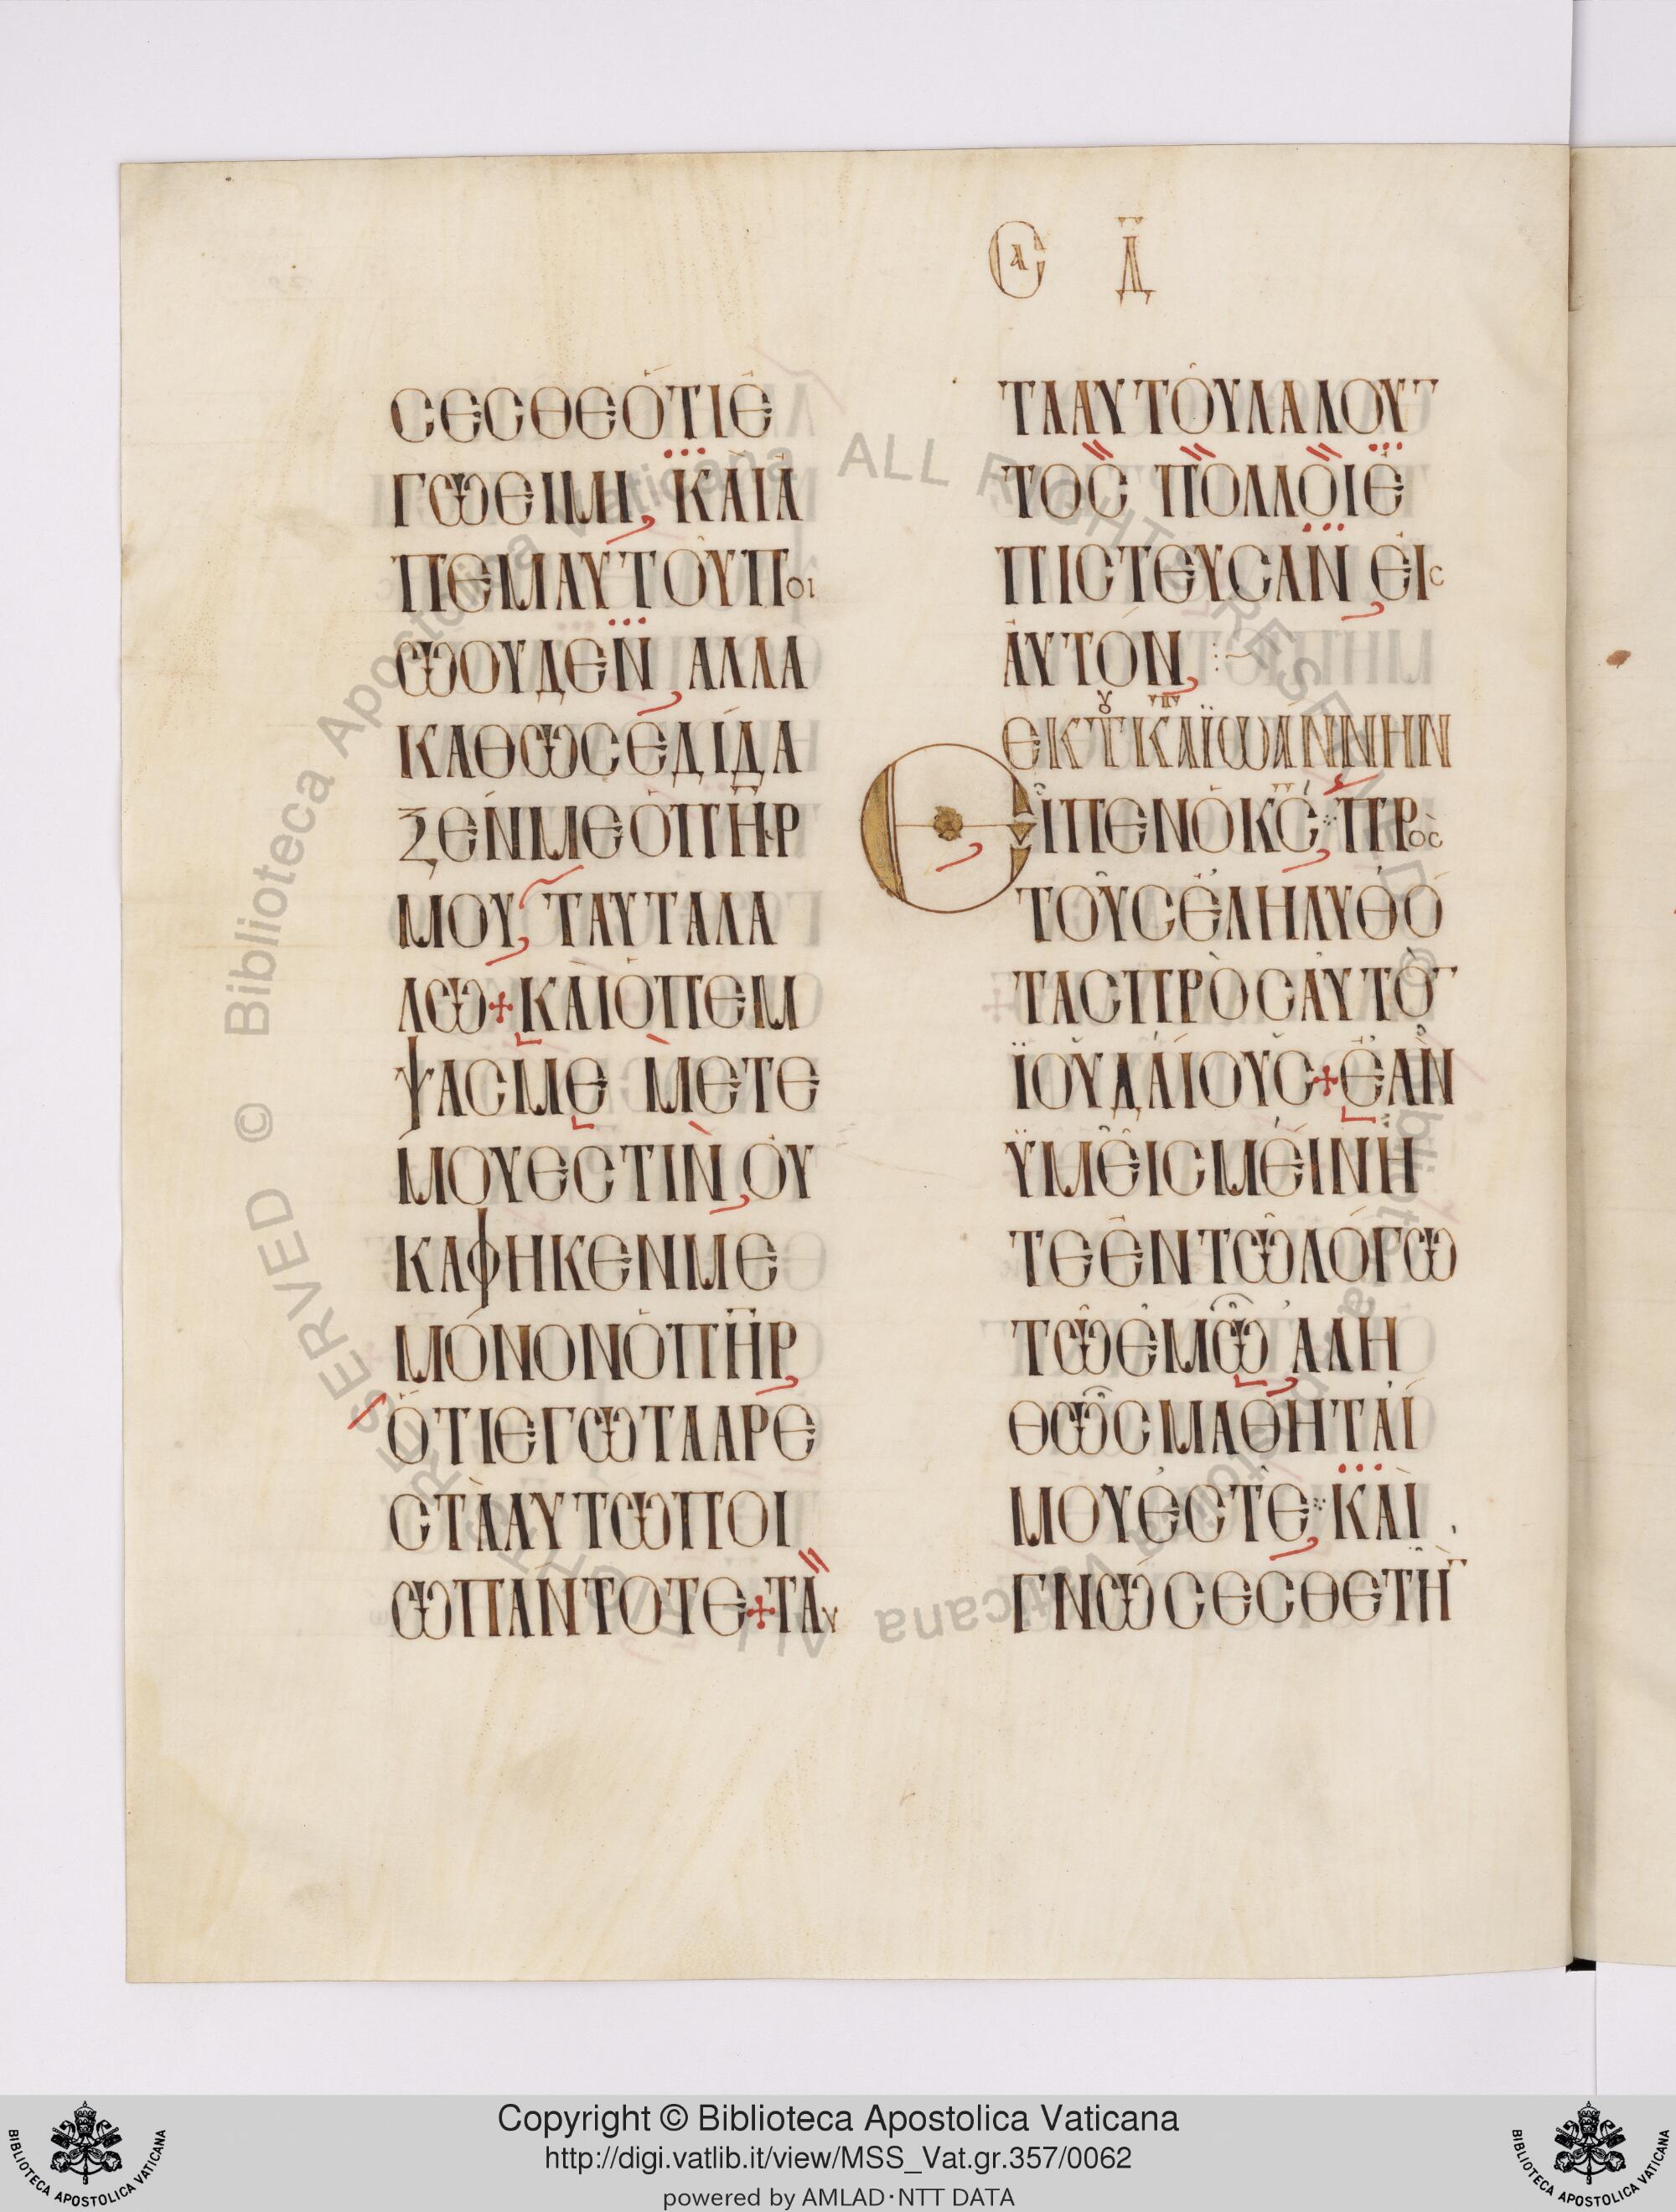 Ⲉ͞ⲁ Δ̄
ϹΕϹΘΕὍΤΙΕ
ΓΩΕΙΜΙ, ΚΑΙΑ
ΠΕΜΑΥΤΟΥΠΟΙ
ΩΟΥΔΕΝ, ΑΛΛΑ
ΚΑΘΩϹΕΔΙΔΑ
ΞΕΝΜΕΟΠΗ̅Ρ
ΜΟΥ, ΤΑΥΤΑΛΑ
ΛΩ+ΚΑΙΟΠΕΜ
ΨΑϹΜΕ ΜΕΤΕ
ΜΟΥΕϹΤΙΝ, ΟΥ
ΚΑΦΗΚΕΝΜΕ
ΜΟΝΟΝΟΠΗ̅Ρ,
ΟΤΙΕΓΩΤΑΑΡΕ
ϹΤΑΑΥΤΩΠΟΙ
ΩΠΑΝΤΟΤΕ+ΤΑΥ
ΤΑΑΥΤΟΥΛΑΛΟΥ̅
ΤΟϹ ΠΟΛΛΟΙΕ
ΠΙϹΤΕΥϹΑΝ, ΕΙϹ
ΑΥΤΟΝ, :~
ΕΚΤΚΑΪΩΑΝΝΗΝ
ΕΙΠΕΝΟΚ̅Ϲ, ΠΡΟϹ
ΤΟΥϹΕΛΗΛΥΘΟ
ΤΑϹΠΡΟϹΑΥΤΟ̅
ΪΟΥΔΑΙΟΥϹ+ΕΑΝ
ΫΜΕΙϹΜΕΙΝΗ
ΤΕΕΝΤΩΛΟΓΩ
ΤΩΕΜΩ, ΑΛΗ
ΘΩϹΜΑΘΗΤΑΙ
ΜΟΥΕϹΤΕ, ΚΑΙ
ΓΝΩϹΕϹΘΕΤΗ̅
© Biblioteca Apostolica Vaticana ALL RIGHTS RESERVED
Copyright © Biblioteca Apostolica Vaticana
http://digi.vatlib.it/view/MSS_Vat.gr.357/0062
powered by AMLAD·NTT DATA
BIBLIOTECA APOSTOLICA VATICANA
BIBLIOTECA APOSTOLICA VATICANA